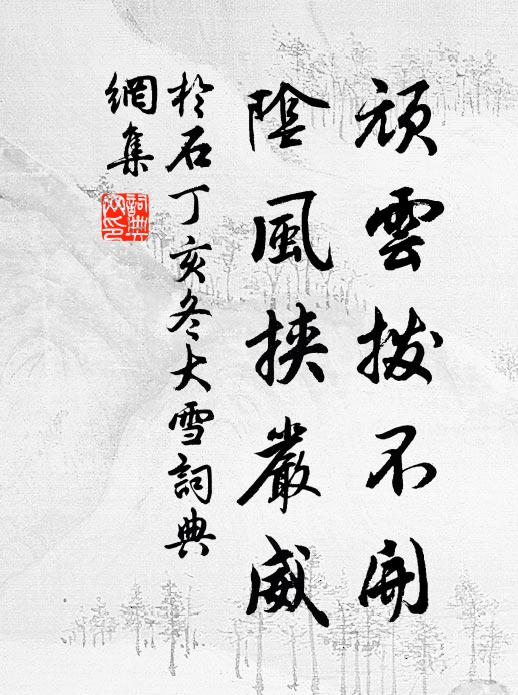 頑雲撥不開
陰風挾嚴威
於石丁亥冬大雪詞典
網集
詞典
网印